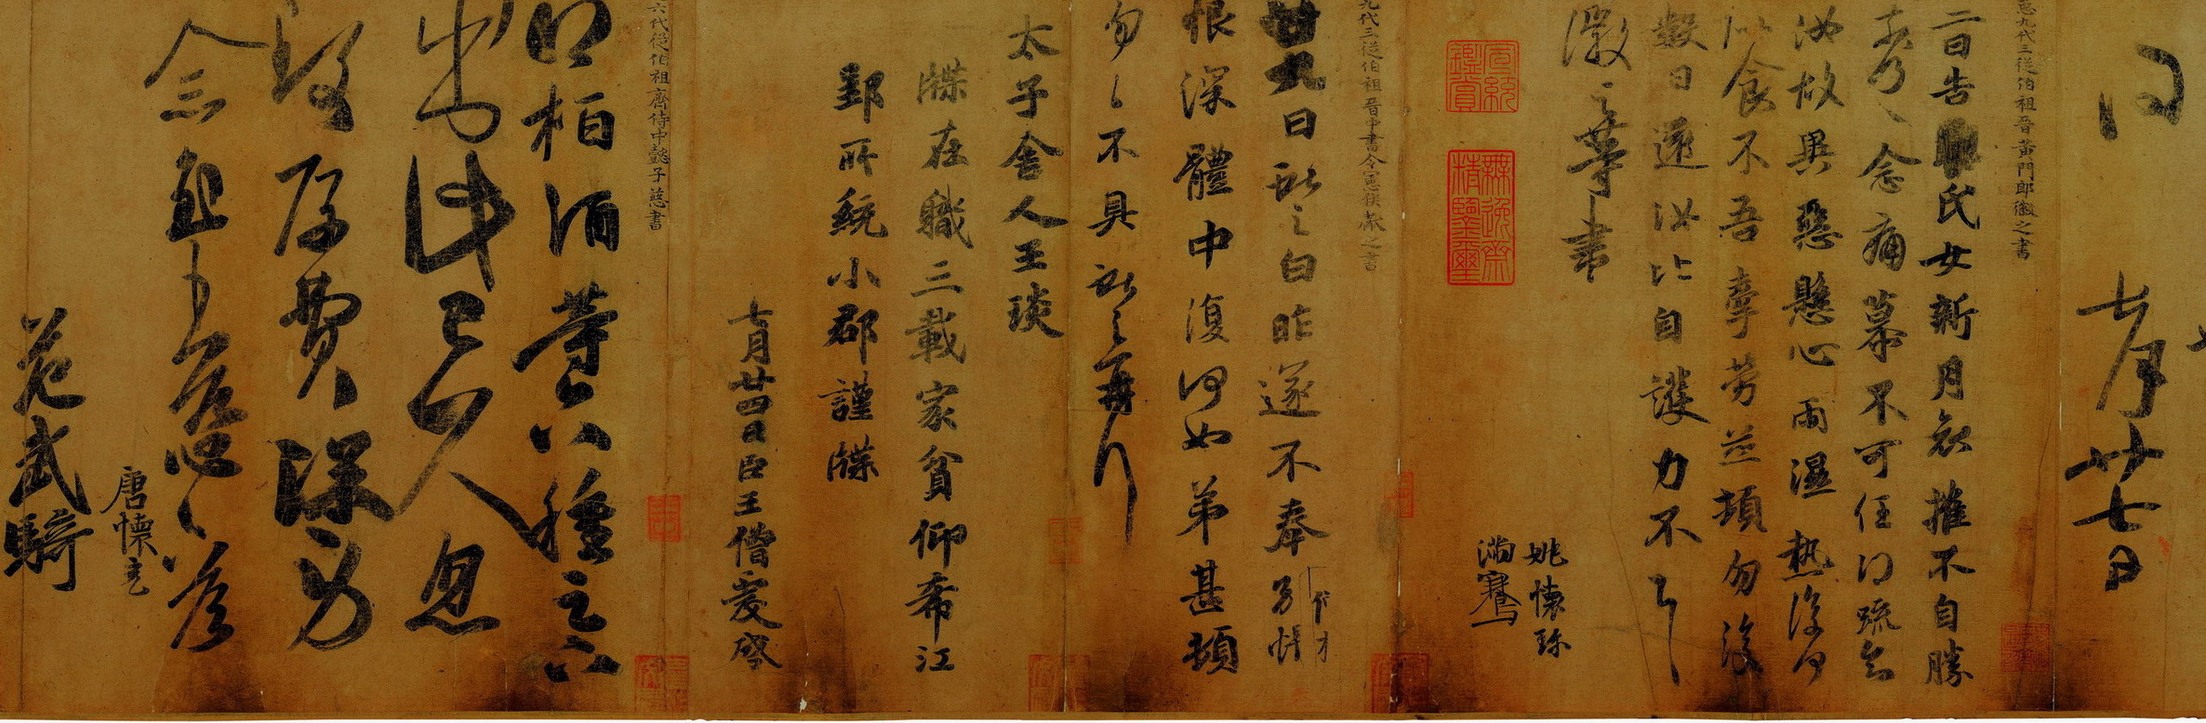 七月廿七日
臣九代三從伯祖晉黃門郎徽之書
二日告氏女新月哀摧不自勝
奈何奈何念痛慕不可任得疏知
汝故異惡懸心雨濕熱復何
似食不吾牽勞並頓勿復
數日還汝比自護力不具
徽之等書
姚懷珍
滿騫
宣統鑑賞
無逸齋精鑒璽
九代三從伯祖晉中書令憲侯獻之書
廿九日獻之白昨遂不奉別悵
恨深體中復何如弟甚頓
匆匆不具獻之再拜
太子舍人王琰
牒在職三載家貧仰希江
郢所統小郡謹牒
七月廿四日臣王僧虔啓
六代從伯祖齊侍中懿子慈書
得栢酒等六種足下
出此已久忽
致厚費深勞
念
唐懷充
范武騎